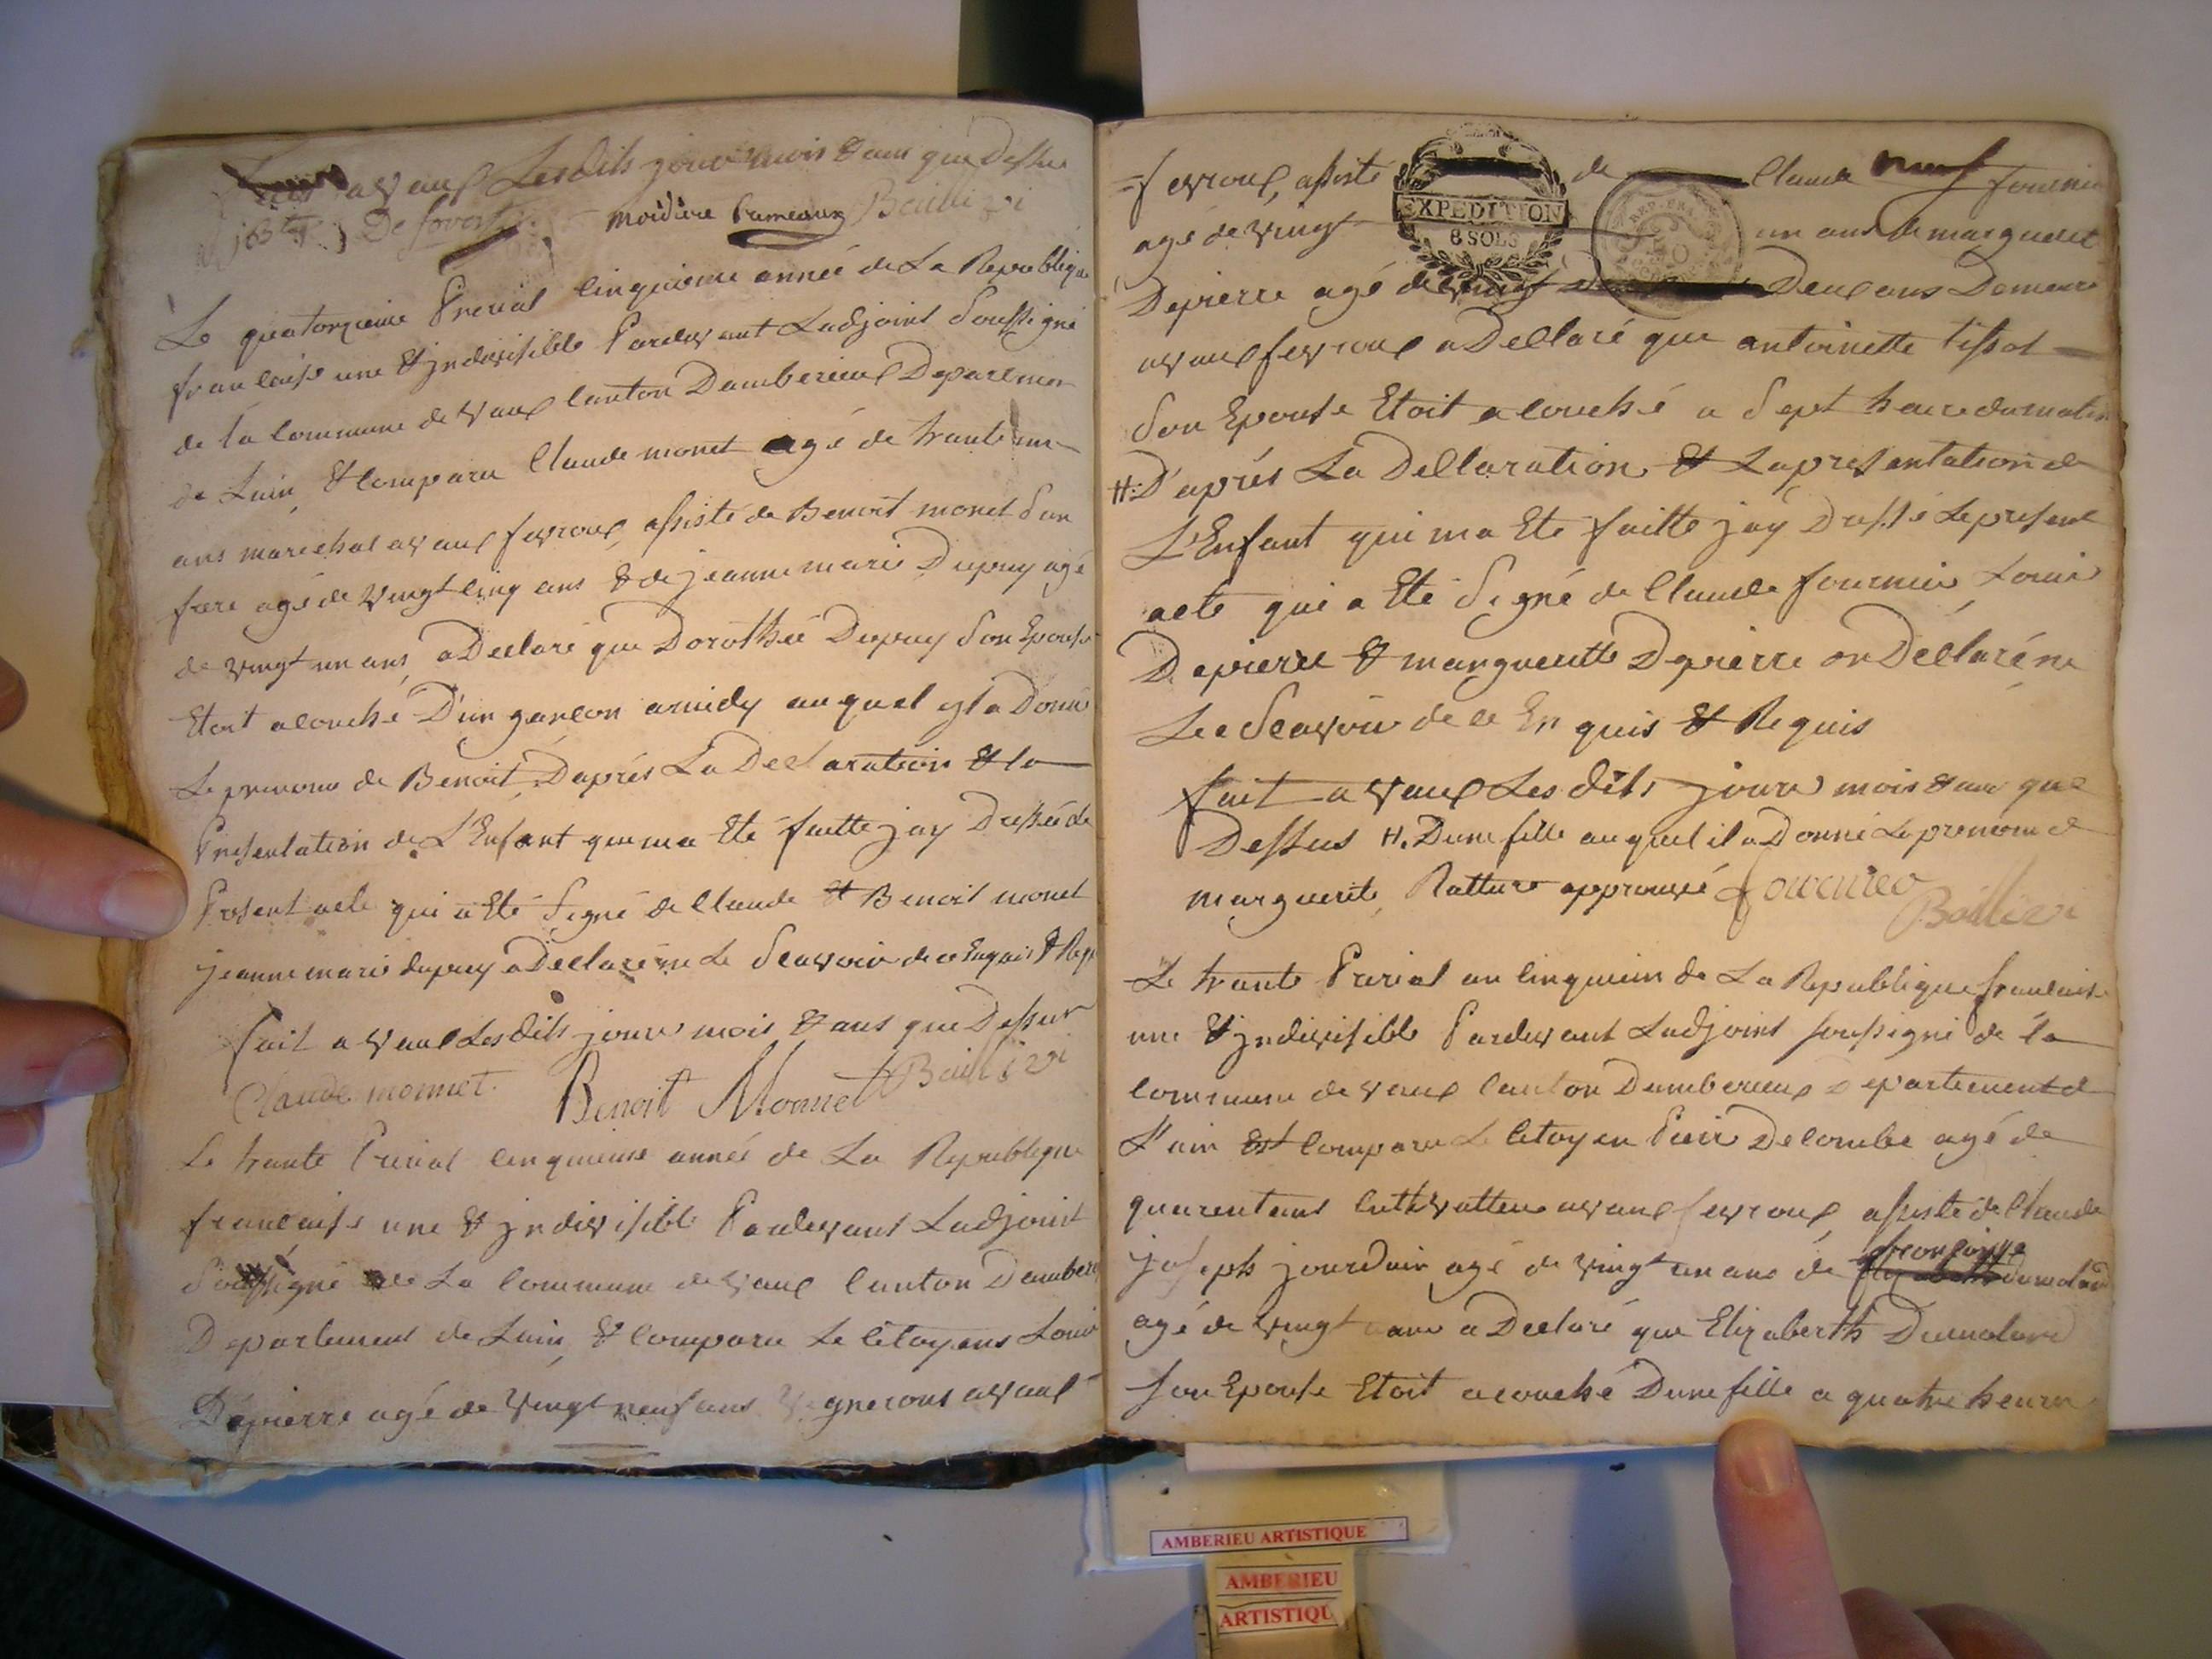 a vaux Lesdits jour mois & ans que Dessus
moidière Bailli
Le quatorzieme Prerial Cinquieme année de La Republique
francaise une & jndivisible Pardevant Ladjoint Soussigné
de la Commune de vaux Canton Damberieux Departemen
de Lain, & Comparu Claude monet agé de trante un
ans marechal a vaux fevroux, assisté de Benoit monet Son
frere agé de vingt Cinq ans & de jeanne marie Dupuy agé
de vingt un ans, a Declaré que Dorothée Dupuy Son Epouse
Etoit acouché D'un garcon a midy auquel yl a Donné
Le prenoms de Benoit, D'aprés La Declaration & la
Presentation de L'Enfant qui ma Eté faitte jay Dressé de
Present acte qui a Eté Signé de Claude & Benoit monet
jeanne marie dupuy a Declaré ne Le Scavoir de ce Enquis & Requ
fait a vaux Lesdits jour mois & ans que Dessus
Claude monnet. Benoit Monnet Bailli
Le trante Prerial Cinquieme année de La Republique
francaise une & jndivisible Pardevant Ladjoint
Soussigné de La Commune de vaux Canton Damberi
Departement de Lain, & Comparu Le Citoyens Louis
Depierre agé de vingt neuf ans vignerons a vaux
= fevroux, assisté de Claude fournier
EXPEDITION
8 SOLS
REP. FRA
agé de vingt un ans & marguerit
Depierre agé de vingt Deux ans Demeure
a vaux fevroux a Declaré que antoinette tissot
Son Epouse Etoit acouché a Sept heure du matin
#. D'aprés La Declaration & La presentation de
L'Enfant qui ma Eté faitte jay Dressé Le present
acte qui a Eté Signé de Claude fournier, Louis
Depierre & marguerite Depierre on Déclaré ne
Le Scavoir de ce Enquis & Requis
fait a vaux Les dits jours mois & an que
Dessus #. Dune fille auquel il a Donné Le prenom de
marguerite, Ratture approuvé fournier
Bailli
Le trante Prerial an Cinquieme de La Republique francaise
une & jndivisible Pardevant Ladjoint soussigné de la
Commune de vaux Canton Damberieux Departement de
L'ain Est Comparu Le Citoyen Pierre Delombe agé de
quarentans Cultivatteur a vaux fevroux, assisté de Claude
joseph jourdain agé de vingt un ans de francoise dumolard
agé de vingt ans a Declaré que Elizaberth Dumolard
son Epouse Etoit acouché Dune fille a quatre heures
AMBERIEU ARTISTIQUE
AMBERIEU
ARTISTIQU